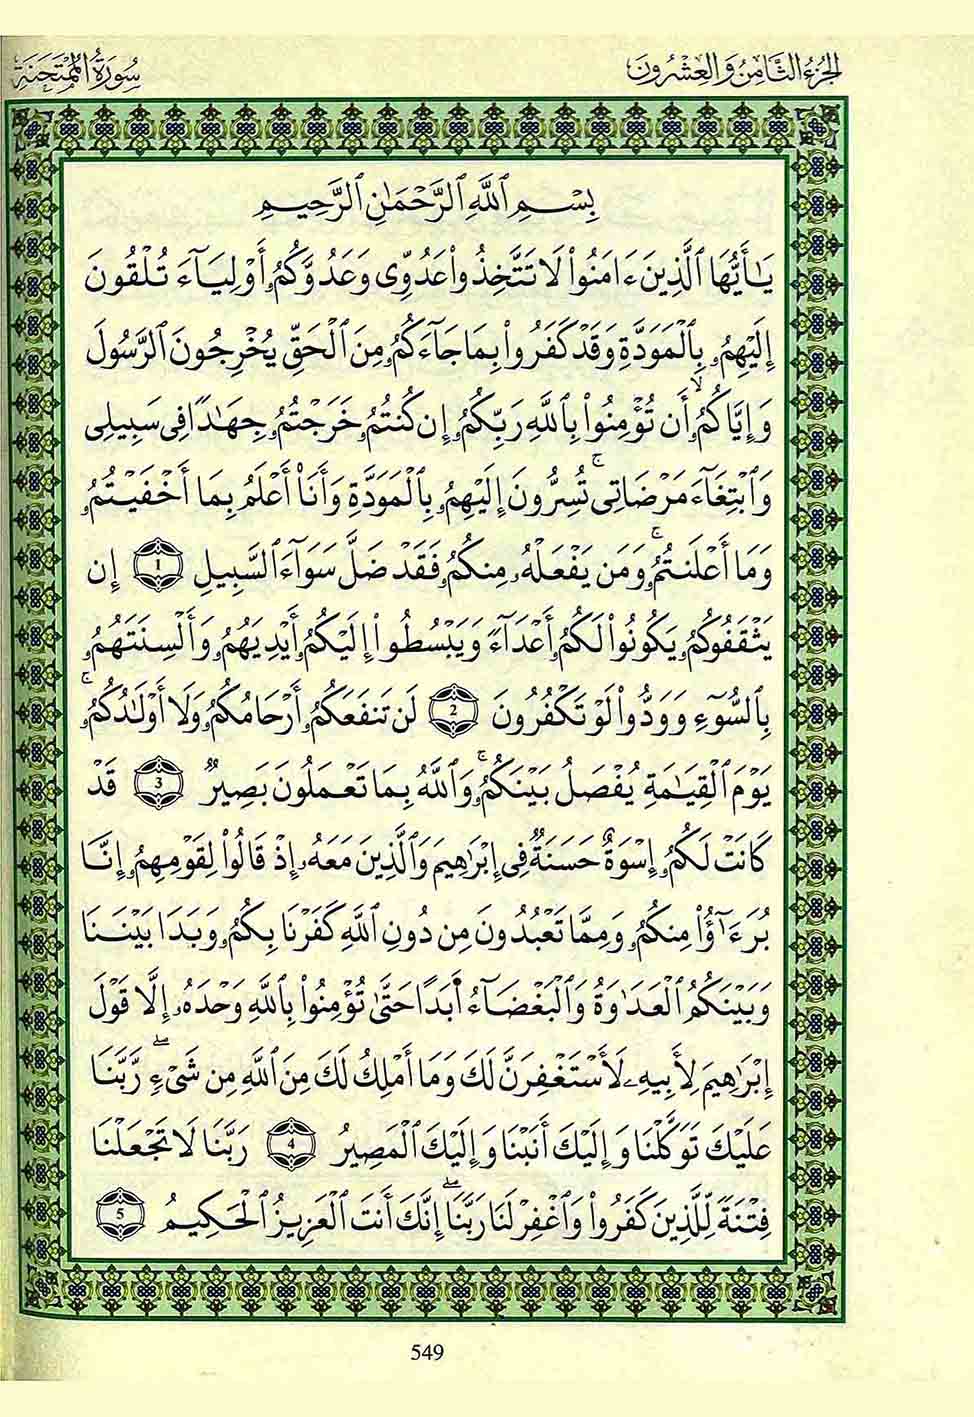 الجزء الثامن والعشرون
سورة الممتحنة
بِسْمِ ٱللَّهِ ٱلرَّحْمَٰنِ ٱلرَّحِيمِ
يَٰٓأَيُّهَا ٱلَّذِينَ ءَامَنُوا۟ لَا تَتَّخِذُوا۟ عَدُوِّى وَعَدُوَّكُمُۥٓ أَوْلِيَآءَ تُلْقُونَ
إِلَيْهِمُۥ بِٱلْمَوَدَّةِ وَقَدْ كَفَرُوا۟ بِمَا جَآءَكُمُۥ مِنَ ٱلْحَقِّ يُخْرِجُونَ ٱلرَّسُولَ
وَإِيَّاكُمُۥٓ ۙ أَن تُؤْمِنُوا۟ بِٱللَّهِ رَبِّكُمُۥٓ إِن كُنتُمُۥ خَرَجْتُمُۥ جِهَٰدًا فِى سَبِيلِى
وَٱبْتِغَآءَ مَرْضَاتِى ۚ تُسِرُّونَ إِلَيْهِمُۥ بِٱلْمَوَدَّةِ وَأَنَا۠ أَعْلَمُ بِمَا أَخْفَيْتُمُۥ
وَمَا أَعْلَنتُمُۥ ۚ وَمَن يَفْعَلْهُۥ مِنكُمُۥ فَقَدْ ضَلَّ سَوَآءَ ٱلسَّبِيلِ 1 إِن
يَثْقَفُوكُمُۥ يَكُونُوا۟ لَكُمُۥٓ أَعْدَآءً وَيَبْسُطُوا۟ إِلَيْكُمُۥٓ أَيْدِيَهُمُۥ وَأَلْسِنَتَهُمُۥ
بِٱلسُّوٓءِ وَوَدُّوا۟ لَوْ تَكْفُرُونَ 2 لَن تَنفَعَكُمُۥٓ أَرْحَامُكُمُۥ وَلَا أَوْلَٰدُكُمُۥ ۚ
يَوْمَ ٱلْقِيَٰمَةِ يُفْصَلُ بَيْنَكُمُۥ ۚ وَٱللَّهُ بِمَا تَعْمَلُونَ بَصِيرٌ 3 قَدْ
كَانَتْ لَكُمُۥٓ إِسْوَةٌ حَسَنَةٌ فِى إِبْرَٰهِيمَ وَٱلَّذِينَ مَعَهُۥ إِذْ قَالُوا۟ لِقَوْمِهِمُۥٓ إِنَّا
بُرَءَٰٓؤُا۟ مِنكُمُۥ وَمِمَّا تَعْبُدُونَ مِن دُونِ ٱللَّهِ كَفَرْنَا بِكُمُۥ وَبَدَا بَيْنَنَا
وَبَيْنَكُمُ ٱلْعَدَٰوَةُ وَٱلْبَغْضَآءُ أَبَدًا حَتَّىٰ تُؤْمِنُوا۟ بِٱللَّهِ وَحْدَهُۥٓ إِلَّا قَوْلَ
إِبْرَٰهِيمَ لِأَبِيهِ لَأَسْتَغْفِرَنَّ لَكَ وَمَا أَمْلِكُ لَكَ مِنَ ٱللَّهِ مِن شَىْءٍ ۖ رَّبَّنَا
عَلَيْكَ تَوَكَّلْنَا وَإِلَيْكَ أَنَبْنَا وَإِلَيْكَ ٱلْمَصِيرُ 4 رَبَّنَا لَا تَجْعَلْنَا
فِتْنَةً لِّلَّذِينَ كَفَرُوا۟ وَٱغْفِرْ لَنَا رَبَّنَا ۖ إِنَّكَ أَنتَ ٱلْعَزِيزُ ٱلْحَكِيمُ 5
549